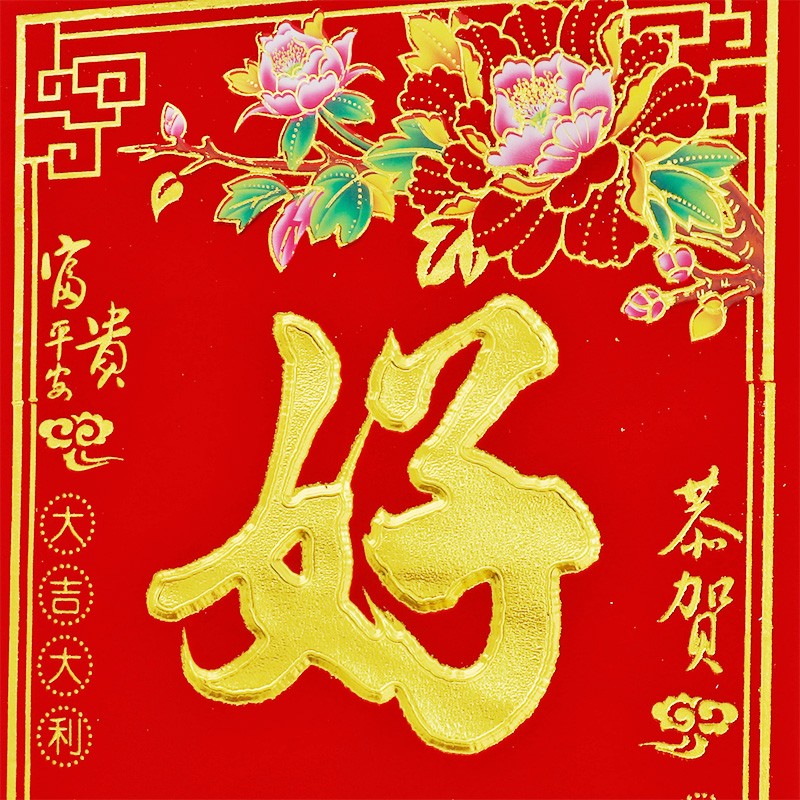 恭贺
好
富贵
平安
大吉大利